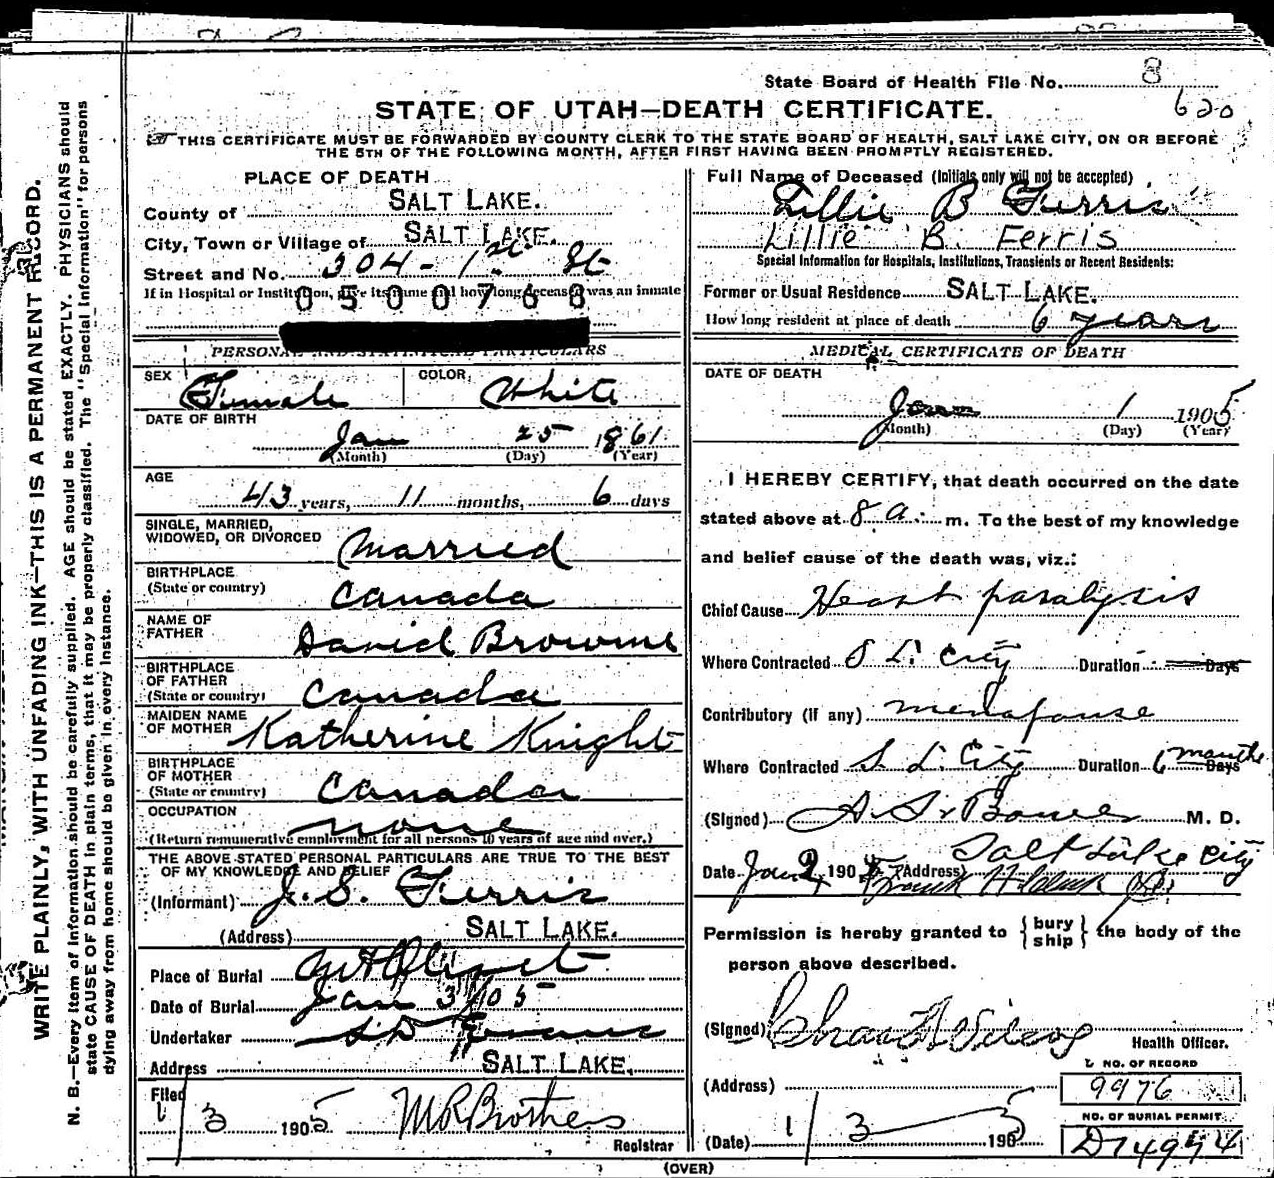 State Board of Health File No. 8
620
STATE OF UTAH—DEATH CERTIFICATE.
THIS CERTIFICATE MUST BE FORWARDED BY COUNTY CLERK TO THE STATE BOARD OF HEALTH, SALT LAKE CITY, ON OR BEFORE
THE 5TH OF THE FOLLOWING MONTH, AFTER FIRST HAVING BEEN PROMPTLY REGISTERED.
WRITE PLAINLY, WITH UNFADING INK—THIS IS A PERMANENT RECORD.
N. B.—Every item of information should be carefully supplied. AGE should be stated EXACTLY. PHYSICIANS should
state CAUSE OF DEATH in plain terms, that it may be properly classified. The "Special Information" for persons
dying away from home should be given in every instance.
PLACE OF DEATH
County of SALT LAKE.
City, Town or Village of SALT LAKE.
Street and No. 304 - 1st St
If in Hospital or Institution, give its name and how long deceased was an inmate
0500768
PERSONAL AND STATISTICAL PARTICULARS
SEX Female COLOR, White
DATE OF BIRTH
Jan 25 1861
(Month) (Day) (Year)
AGE
43 years, 11 months, 6 days
SINGLE, MARRIED,
WIDOWED, OR DIVORCED Married
BIRTHPLACE
(State or country) Canada
NAME OF
FATHER David Browne
BIRTHPLACE
OF FATHER
(State or country) Canada
MAIDEN NAME
OF MOTHER Katherine Knight
BIRTHPLACE
OF MOTHER
(State or country) Canada
OCCUPATION none
(Return remunerative employment for all persons 10 years of age and over.)
THE ABOVE STATED PERSONAL PARTICULARS ARE TRUE TO THE BEST
OF MY KNOWLEDGE AND BELIEF
(Informant) J. S. Ferris
(Address) SALT LAKE.
Place of Burial Mt Olivet
Date of Burial Jan 3/05
Undertaker S.D. Evans
Address SALT LAKE.
Filed
1/3 1905 M R Brothers
Registrar
Full Name of Deceased (Initials only will not be accepted)
Lillie B Ferris
Lillie B. Ferris
Special Information for Hospitals, Institutions, Transients or Recent Residents:
Former or Usual Residence SALT LAKE.
How long resident at place of death 6 years
MEDICAL CERTIFICATE OF DEATH
DATE OF DEATH
Jan 1 1905
(Month) (Day) (Year)
I HEREBY CERTIFY, that death occurred on the date
stated above at 8 a. m. To the best of my knowledge
and belief cause of the death was, viz.:
Chief Cause Heart paralysis
Where Contracted S L City Duration Days
Contributory (if any) menapause
Where Contracted S. L. City Duration 6 months Days
(Signed) A. S. Bower M. D.
Date Jan 2 1905 (Address) Salt Lake City
Permission is hereby granted to {bury ship} the body of the
person above described.
(Signed) Chas F Wilcox
Health Officer.
NO. OF RECORD
(Address) 9976
NO. OF BURIAL PERMIT
(Date) 1/3 1905 D 14994
(OVER)